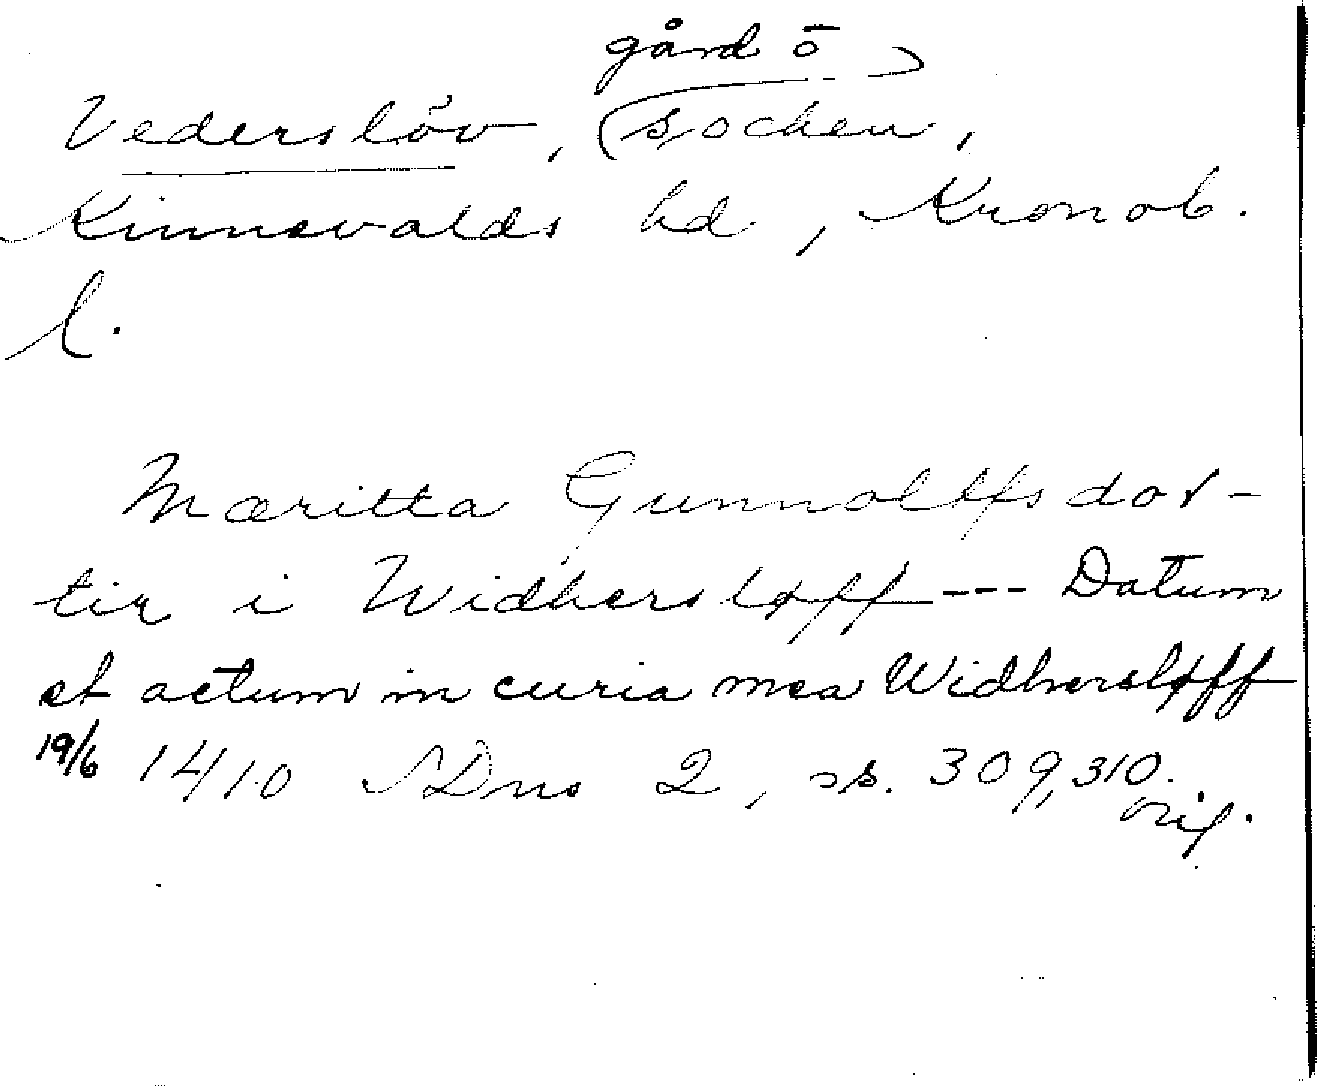 gård o
Vederslöv, socken,
Kinnevalds hd, Kronob.
l.
Mæritta Gunnolffsdot-
tir i Widhersløff --- Datum
et actum in curia mea Widhersløff
19/6 1410 SDns 2, ss. 309, 310.
orig.